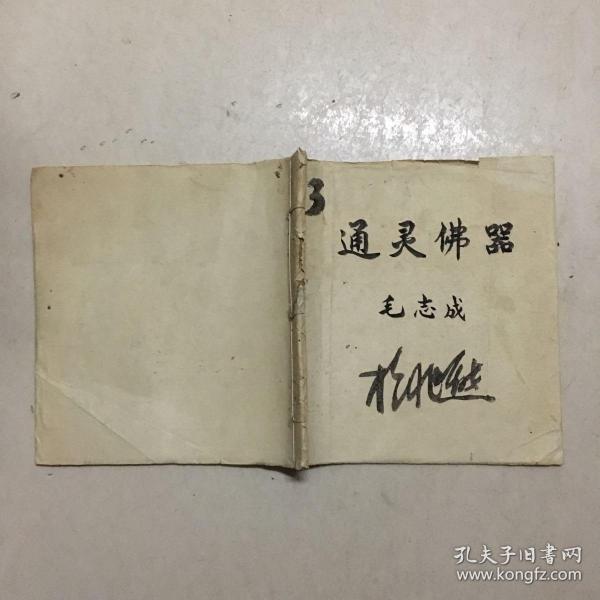 3
通灵佛器
毛志成
孔夫子旧书网
www.kongfz.com